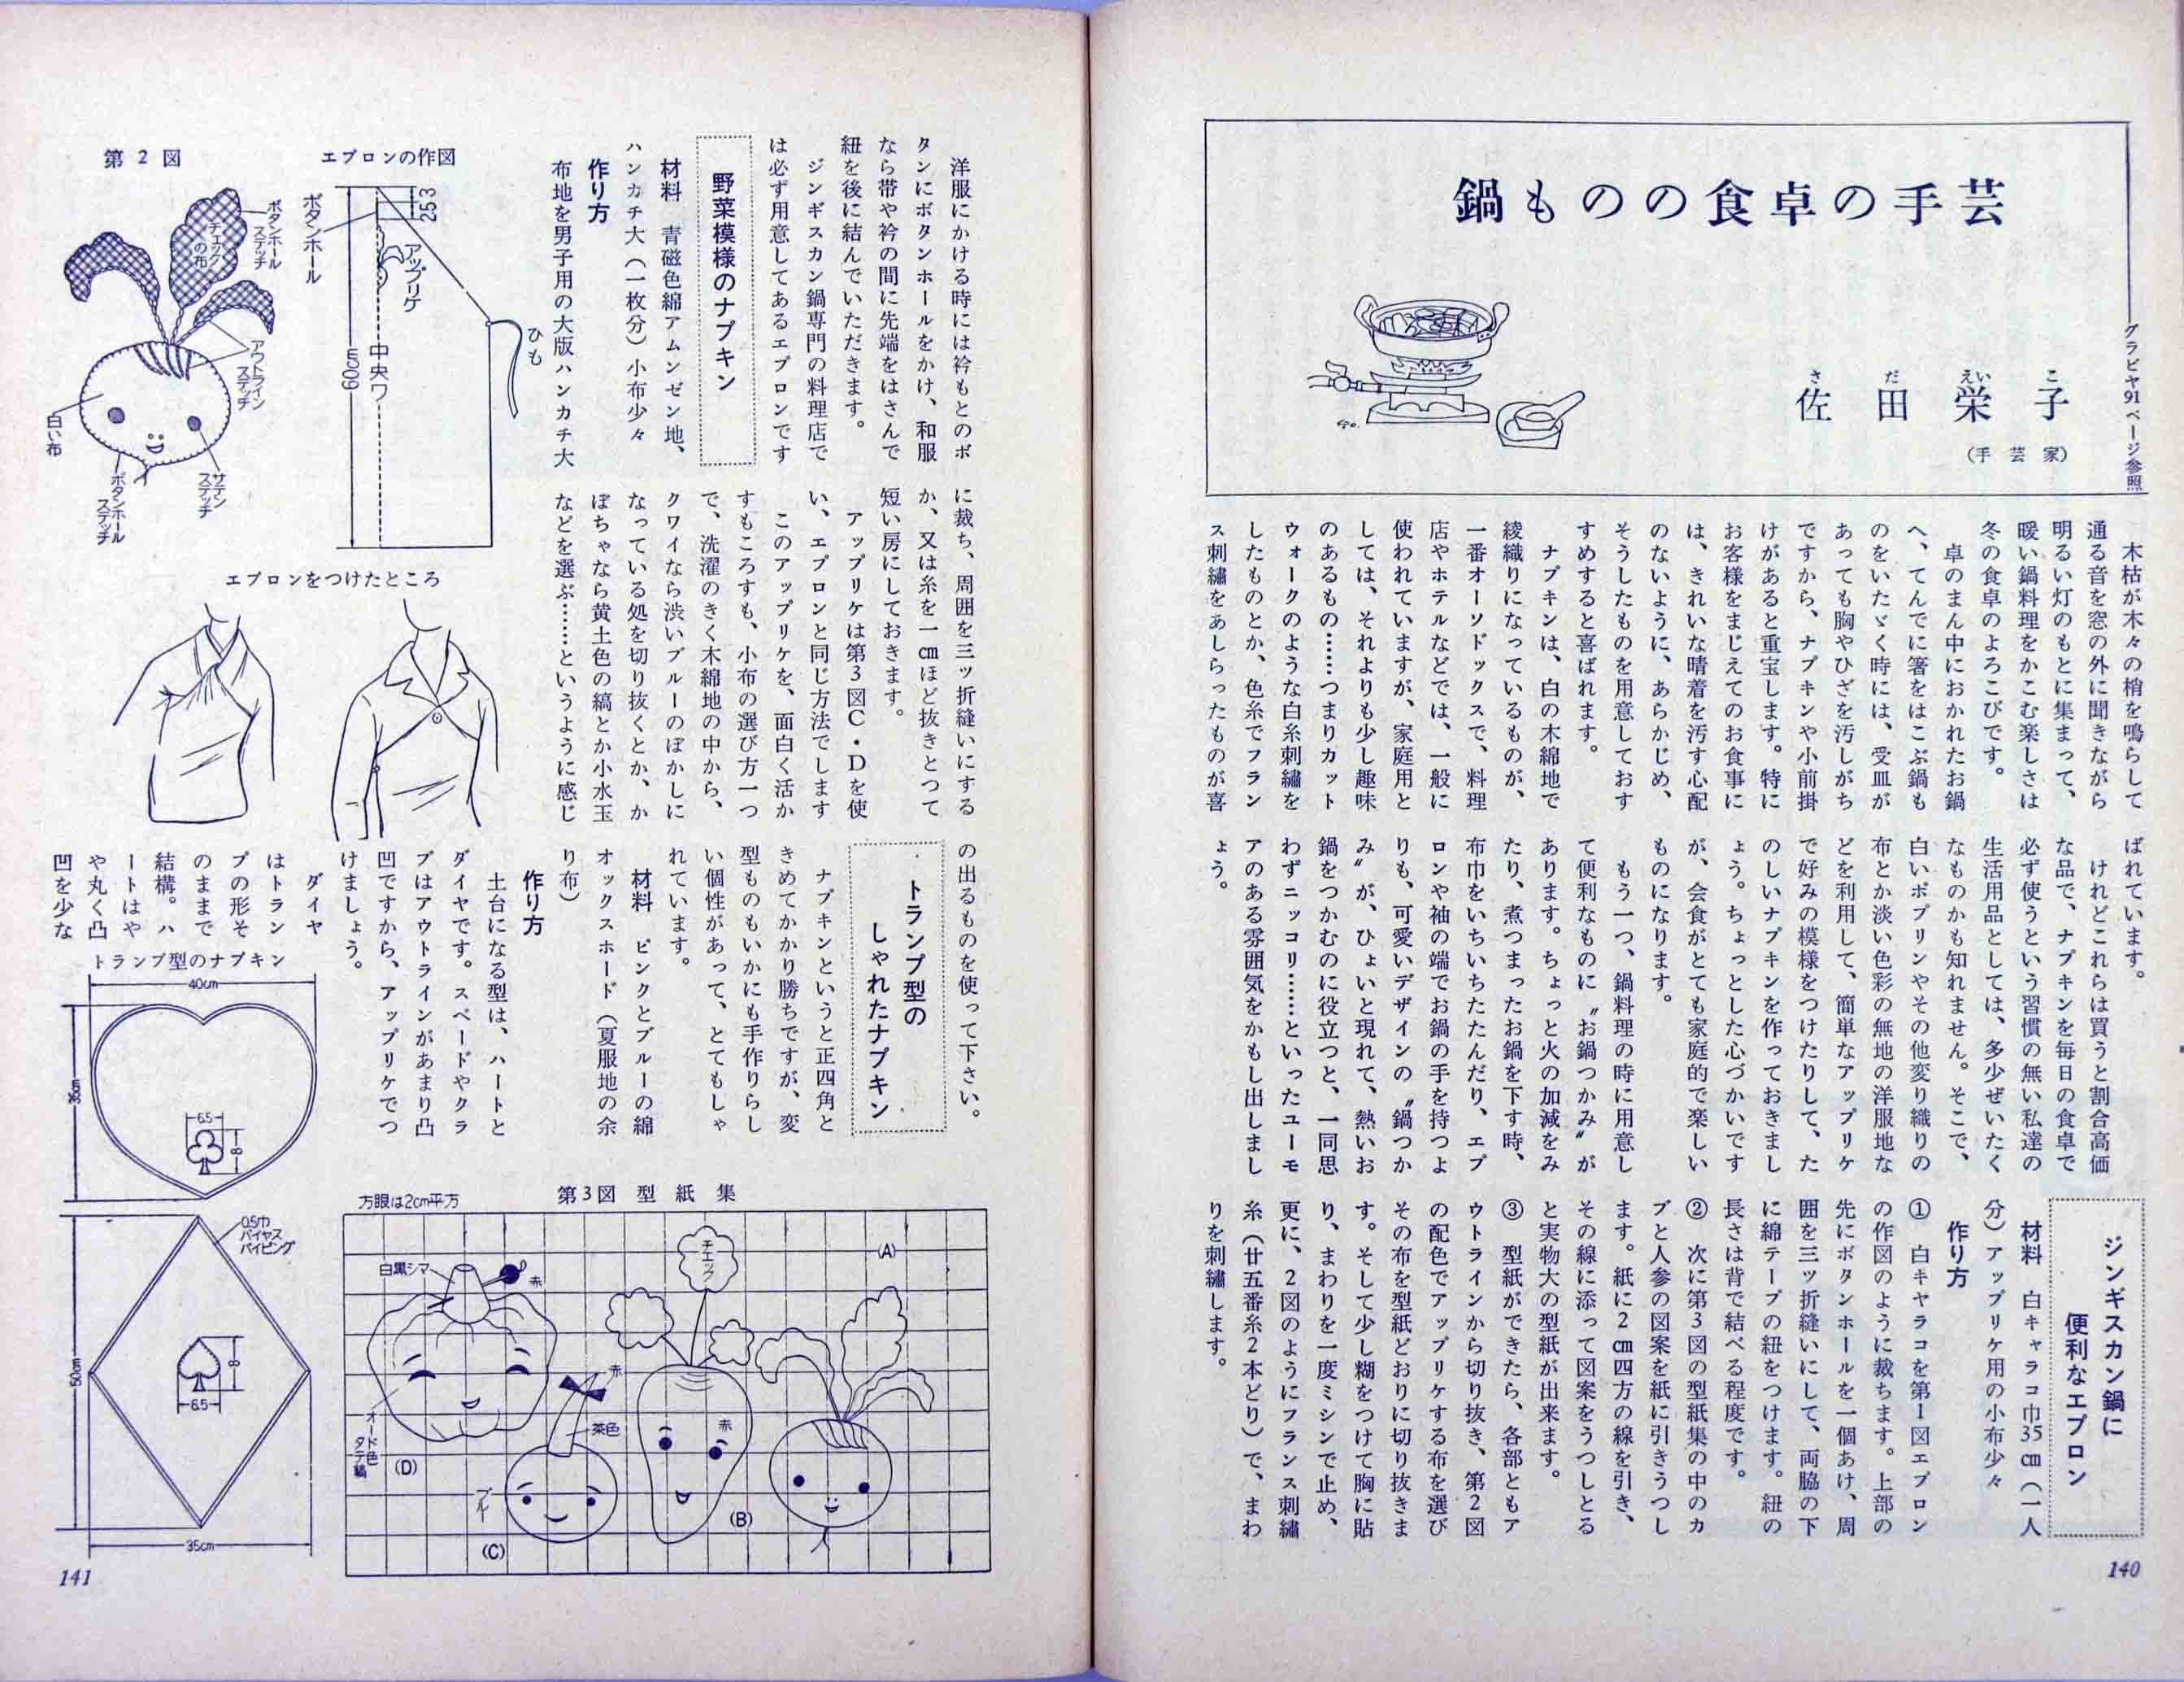 鍋ものの食卓の手芸
グラビヤ91ページ参照
佐田栄子
さだえいこ
(手芸家)
木枯が木々の梢を鳴らして
通る音を窓の外に聞きながら
明るい灯のもとに集まって、
暖い鍋料理をかこむ楽しさは
冬の食卓のよろこびです。
卓のまん中におかれたお鍋
へ、てんでに箸をはこぶ鍋も
のをいたゞく時には、受皿が
あっても胸やひざを汚しがち
ですから、ナプキンや小前掛
けがあると重宝します。特に
お客様をまじえてのお食事に
は、きれいな晴着を汚す心配
のないように、あらかじめ、
そうしたものを用意しておす
すめすると喜ばれます。
ナプキンは、白の木綿地で
綾織りになっているものが、
一番オーソドックスで、料理
店やホテルなどでは、一般に
使われていますが、家庭用と
しては、それよりも少し趣味
のあるもの……つまりカット
ウォークのような白糸刺繡を
したものとか、色糸でフラン
ス刺繡をあしらったものが喜
ばれています。
けれどこれらは買うと割合高価
な品で、ナプキンを毎日の食卓で
必ず使うという習慣の無い私達の
生活用品としては、多少ぜいたく
なものかも知れません。そこで、
白いポプリンやその他変り織りの
布とか淡い色彩の無地の洋服地な
どを利用して、簡単なアップリケ
で好みの模様をつけたりして、た
のしいナプキンを作っておきまし
ょう。ちょっとした心づかいです
が、会食がとても家庭的で楽しい
ものになります。
もう一つ、鍋料理の時に用意し
て便利なものに〝お鍋つかみ〟が
あります。ちょっと火の加減をみ
たり、煮つまったお鍋を下す時、
布巾をいちいちたたんだり、エプ
ロンや袖の端でお鍋の手を持つよ
りも、可愛いデザインの〝鍋つか
み〟が、ひょいと現れて、熱いお
鍋をつかむのに役立つと、一同思
わずニッコリ……といったユーモ
アのある雰囲気をかもし出しまし
ょう。
ジンギスカン鍋に
便利なエプロン
材料　白キャラコ巾35㎝(一人
分)アップリケ用の小布少々
作り方
①　白キャラコを第1図エプロン
の作図のように裁ちます。上部の
先にボタンホールを一個あけ、周
囲を三ッ折縫いにして、両脇の下
に綿テープの紐をつけます。紐の
長さは背で結べる程度です。
②　次に第3図の型紙集の中のカ
ブと人参の図案を紙に引きうつし
ます。紙に2㎝四方の線を引き、
その線に添って図案をうつしとる
と実物大の型紙が出来ます。
③　型紙ができたら、各部ともア
ウトラインから切り抜き、第2図
の配色でアップリケする布を選び
その布を型紙どおりに切り抜きま
す。そして少し糊をつけて胸に貼
り、まわりを一度ミシンで止め、
更に、2図のようにフランス刺繡
糸(廿五番糸2本どり)で、まわ
りを刺繡します。
140
洋服にかける時には衿もとのボ
タンにボタンホールをかけ、和服
なら帯や衿の間に先端をはさんで
紐を後に結んでいただきます。
ジンギスカン鍋専門の料理店で
は必ず用意してあるエプロンです
野菜模様のナプキン
材料　青磁色綿アムンゼン地、
ハンカチ大(一枚分)小布少々
作り方
布地を男子用の大版ハンカチ大
に裁ち、周囲を三ッ折縫いにする
か、又は糸を一㎝ほど抜きとって
短い房にしておきます。
アップリケは第3図C・Dを使
い、エプロンと同じ方法でします
このアップリケを、面白く活か
すもころすも、小布の選び方一つ
で、洗濯のきく木綿地の中から、
クワイなら渋いブルーのぼかしに
なっている処を切り抜くとか、か
ぼちゃなら黄土色の縞とか小水玉
などを選ぶ……というように感じ
の出るものを使って下さい。
トランプ型の
しゃれたナプキン
ナプキンというと正四角と
きめてかかり勝ちですが、変
型ものもいかにも手作りらし
い個性があって、とてもしゃ
れています。
材料　ピンクとブルーの綿
オックスホード(夏服地の余
り布)
作り方
土台になる型は、ハートと
ダイヤです。スペードやクラ
ブはアウトラインがあまり凸
凹ですから、アップリケでつ
けましょう。
ダイヤ
はトラン
プの形そ
のままで
結構。ハ
ートはや
や丸く凸
凹を少な
エプロンの作図
253
ボタンホール
アップリケ
ひも
中央ワ
60cm
第2図
ボタンホール
ステッチ
チェック
の布
アウトライン
ステッチ
白い布
サテン
ステッチ
ボタンホール
ステッチ
エプロンをつけたところ
トランプ型のナプキン
40cm
35cm
6.5
8
0.5巾
バイヤス
パイピング
50cm
8
6.5
35cm
第3図　型紙集
方眼は2cm平方
白黒シマ
赤
チェック
(A)
赤
茶色
赤
オード色
タテ縞
(D)
ブルー
(B)
(C)
141